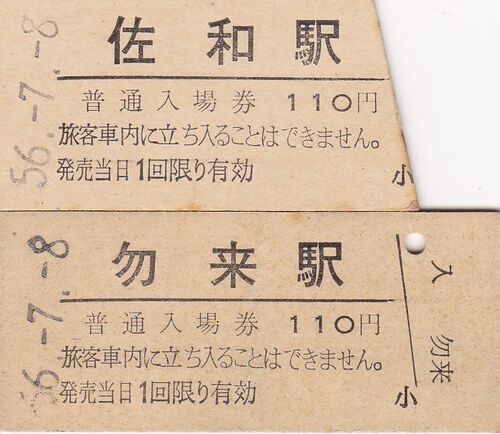 56.-7.-8
佐和駅
普通入場券 110円
旅客車内に立ち入ることはできません。
発売当日1回限り有効
小
56.-7.-8
勿来駅
普通入場券 110円
旅客車内に立ち入ることはできません。
発売当日1回限り有効
入 勿来
小